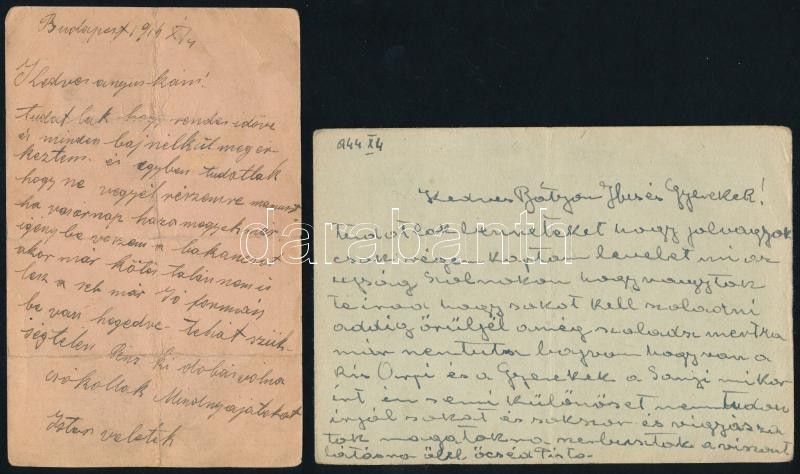 Budapest 1914 XI/4
Kedves anyuskám!
tudatlak hogy rendes időre
és minden baj nélkül megér-
keztem. és egyben tudatlak
hogy ne vegyél részemre
ha vasárnap haza megyek már
igénybe veszem a
akor már kötés talán nem is
lesz a seb már Jó formán
be van hegedve tehát szük-
ségtelen Pénz ki dobás volna
csokollak Mindnyájatokat
Isten veletek
944 XI 4
Kedves Bátyám Ibus és Gyerekek!
tudatlak benneteket hogy jolvagyok
csak régen kaptam levelet mi az
ujság Szolnokon hogy vagytok
te írod hogy sokat kell szaladni
addig örüljél amég szaladsz mert ha
már nem tutsz bajvan hogy van a
kis Árpi és a Gyerekek a Sanyi mikor
írt én semi különöset nem tudok
írjál sokat és sokszor és vigyázza
tok magatokra szerbusztok a viszont
látásra ölel öcséd Pista
darabanth